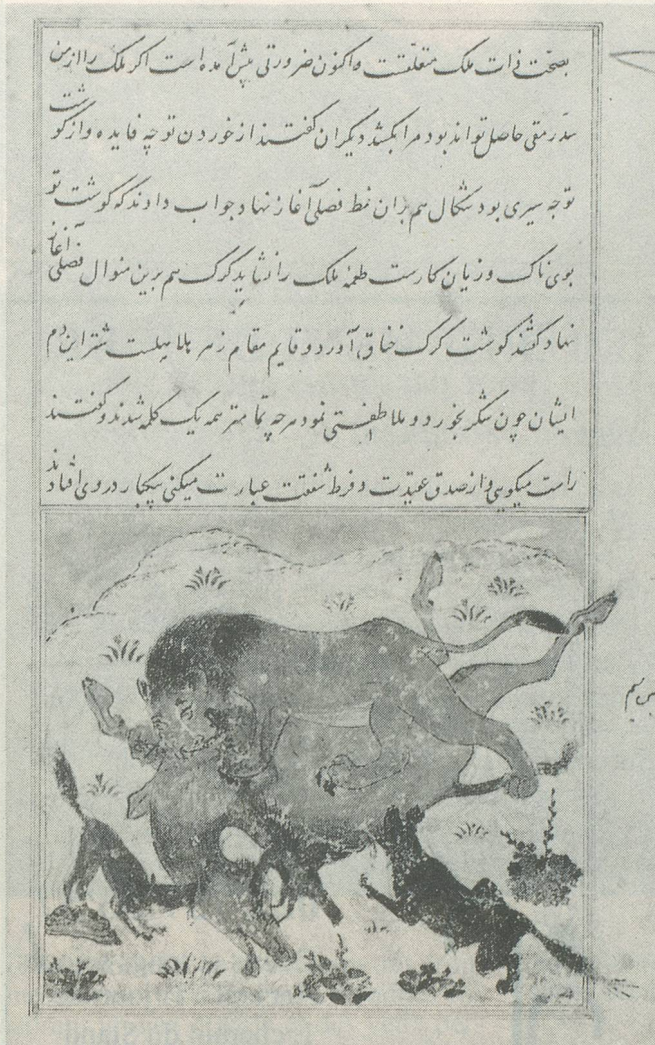 بصحت ذات ملک متعلقست و اکنون ضرورتی پیش آمده است اکر ملک را از من
سدّ رمقی حاصل تواند بود مرا بکشد دیکران کفتند از خوردن تو چه فایده و از کوشت
تو چه سیری بود شکال هم بران نمط فصلی آغاز نهاد جواب دادند که کوشت تو
بوی ناک و زیان کارست طعمهٔ ملک را نشاید کرک هم برین منوال فصلی آغاز
نهاد کفتند کوشت کرک خناق آورد و قایم مقام زهر هلاهلست شتر این دم
ایشان چون شکر بخورد و ملاطفتی نمود هرچه تمامتر همه یک کلمه شدند و کفتند
راست میکویی و از صدق عقیدت و فرط شفقت عبارت میکنی بیکبار در وی افتادند